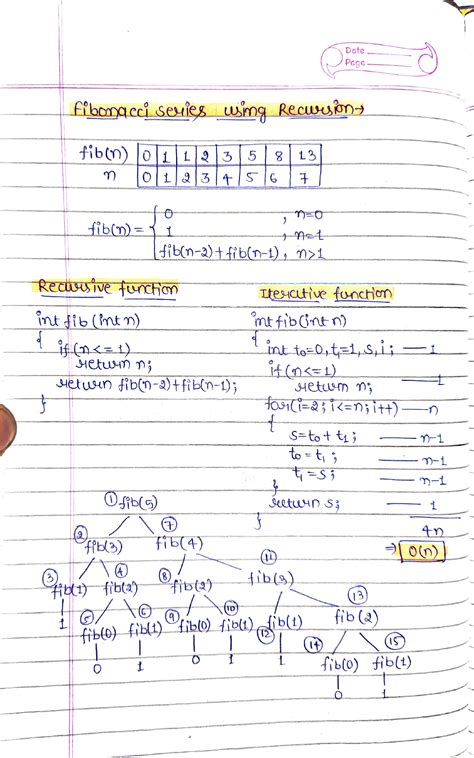 Date
Page
Fibonacci series using Recursion→
fib(n) 0 1 1 2 3 5 8 13
n 0 1 2 3 4 5 6 7
fib(n) = { 0 , n=0
1 , n=1
fib(n-2)+fib(n-1), n>1
Recursive function
int fib(int n)
{
if(n<=1)
return n;
return fib(n-2)+fib(n-1);
}
Iterative function
int fib(int n)
{ int t0=0, t1=1, s, i; — 1
if(n<=1) — 1
return n;
for(i=2; i<=n; i++) — n
{
s=t0+t1; — n-1
t0=t1; — n-1
t1=s; — n-1
}
return s; — 1
}
4n
⇒ O(n)
① fib(5)
② fib(3) ⑦ fib(4)
③ fib(1) ④ fib(2) ⑧ fib(2) ⑪ fib(3)
1 ⑤ fib(0) ⑥ fib(1) ⑨ fib(0) ⑩ fib(1) ⑫ fib(1) ⑬ fib(2)
0 1 0 1 1 ⑭ fib(0) ⑮ fib(1)
0 1